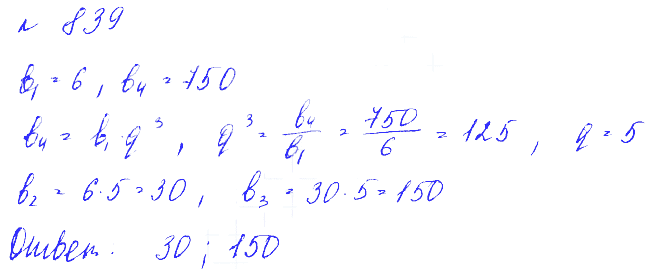 № 839
b₁ = 6, b₄ = 750
b₄ = b₁·q³, q³ = b₄/b₁ = 750/6 = 125, q = 5
b₂ = 6·5 = 30, b₃ = 30·5 = 150
Ответ. 30; 150